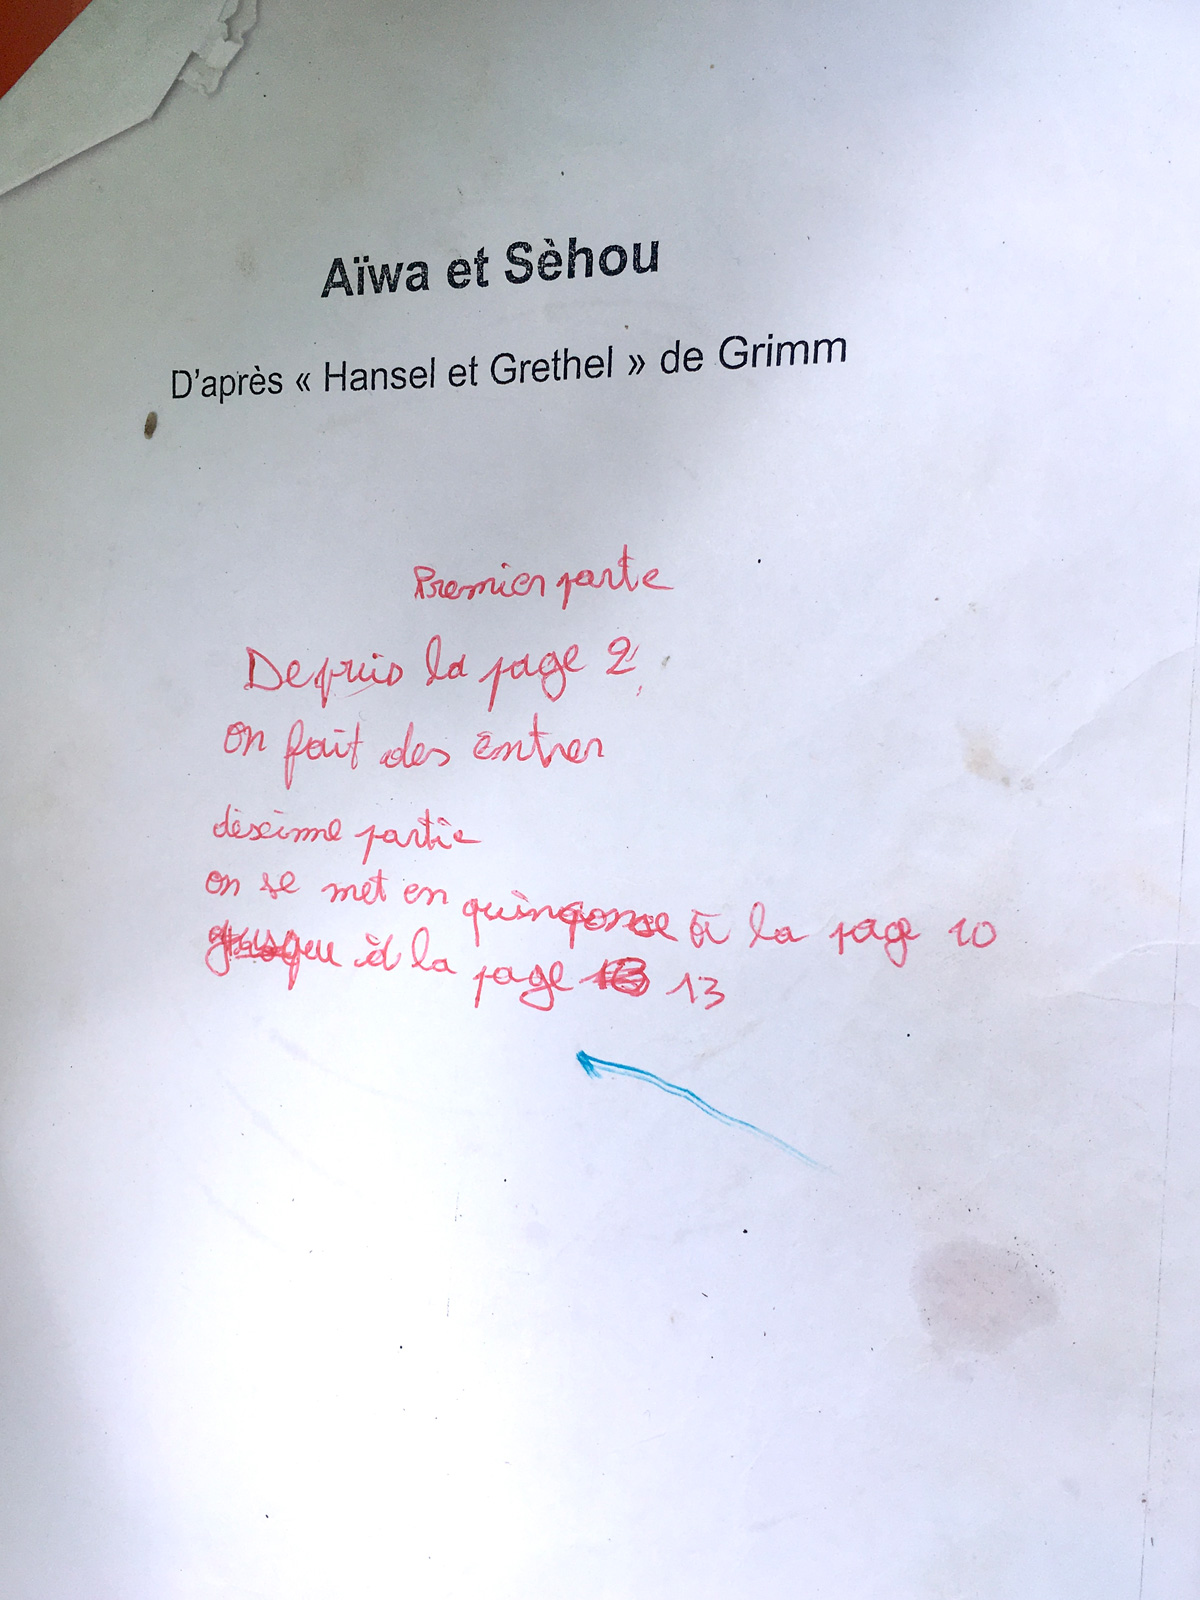 Aïwa et Sèhou
D'après « Hansel et Grethel » de Grimm
Premier parte
Depuis la page 2,
on fait des entrer
dèxeime partie
on se met en quinqonse à la page 10
jusqeu à la page 13